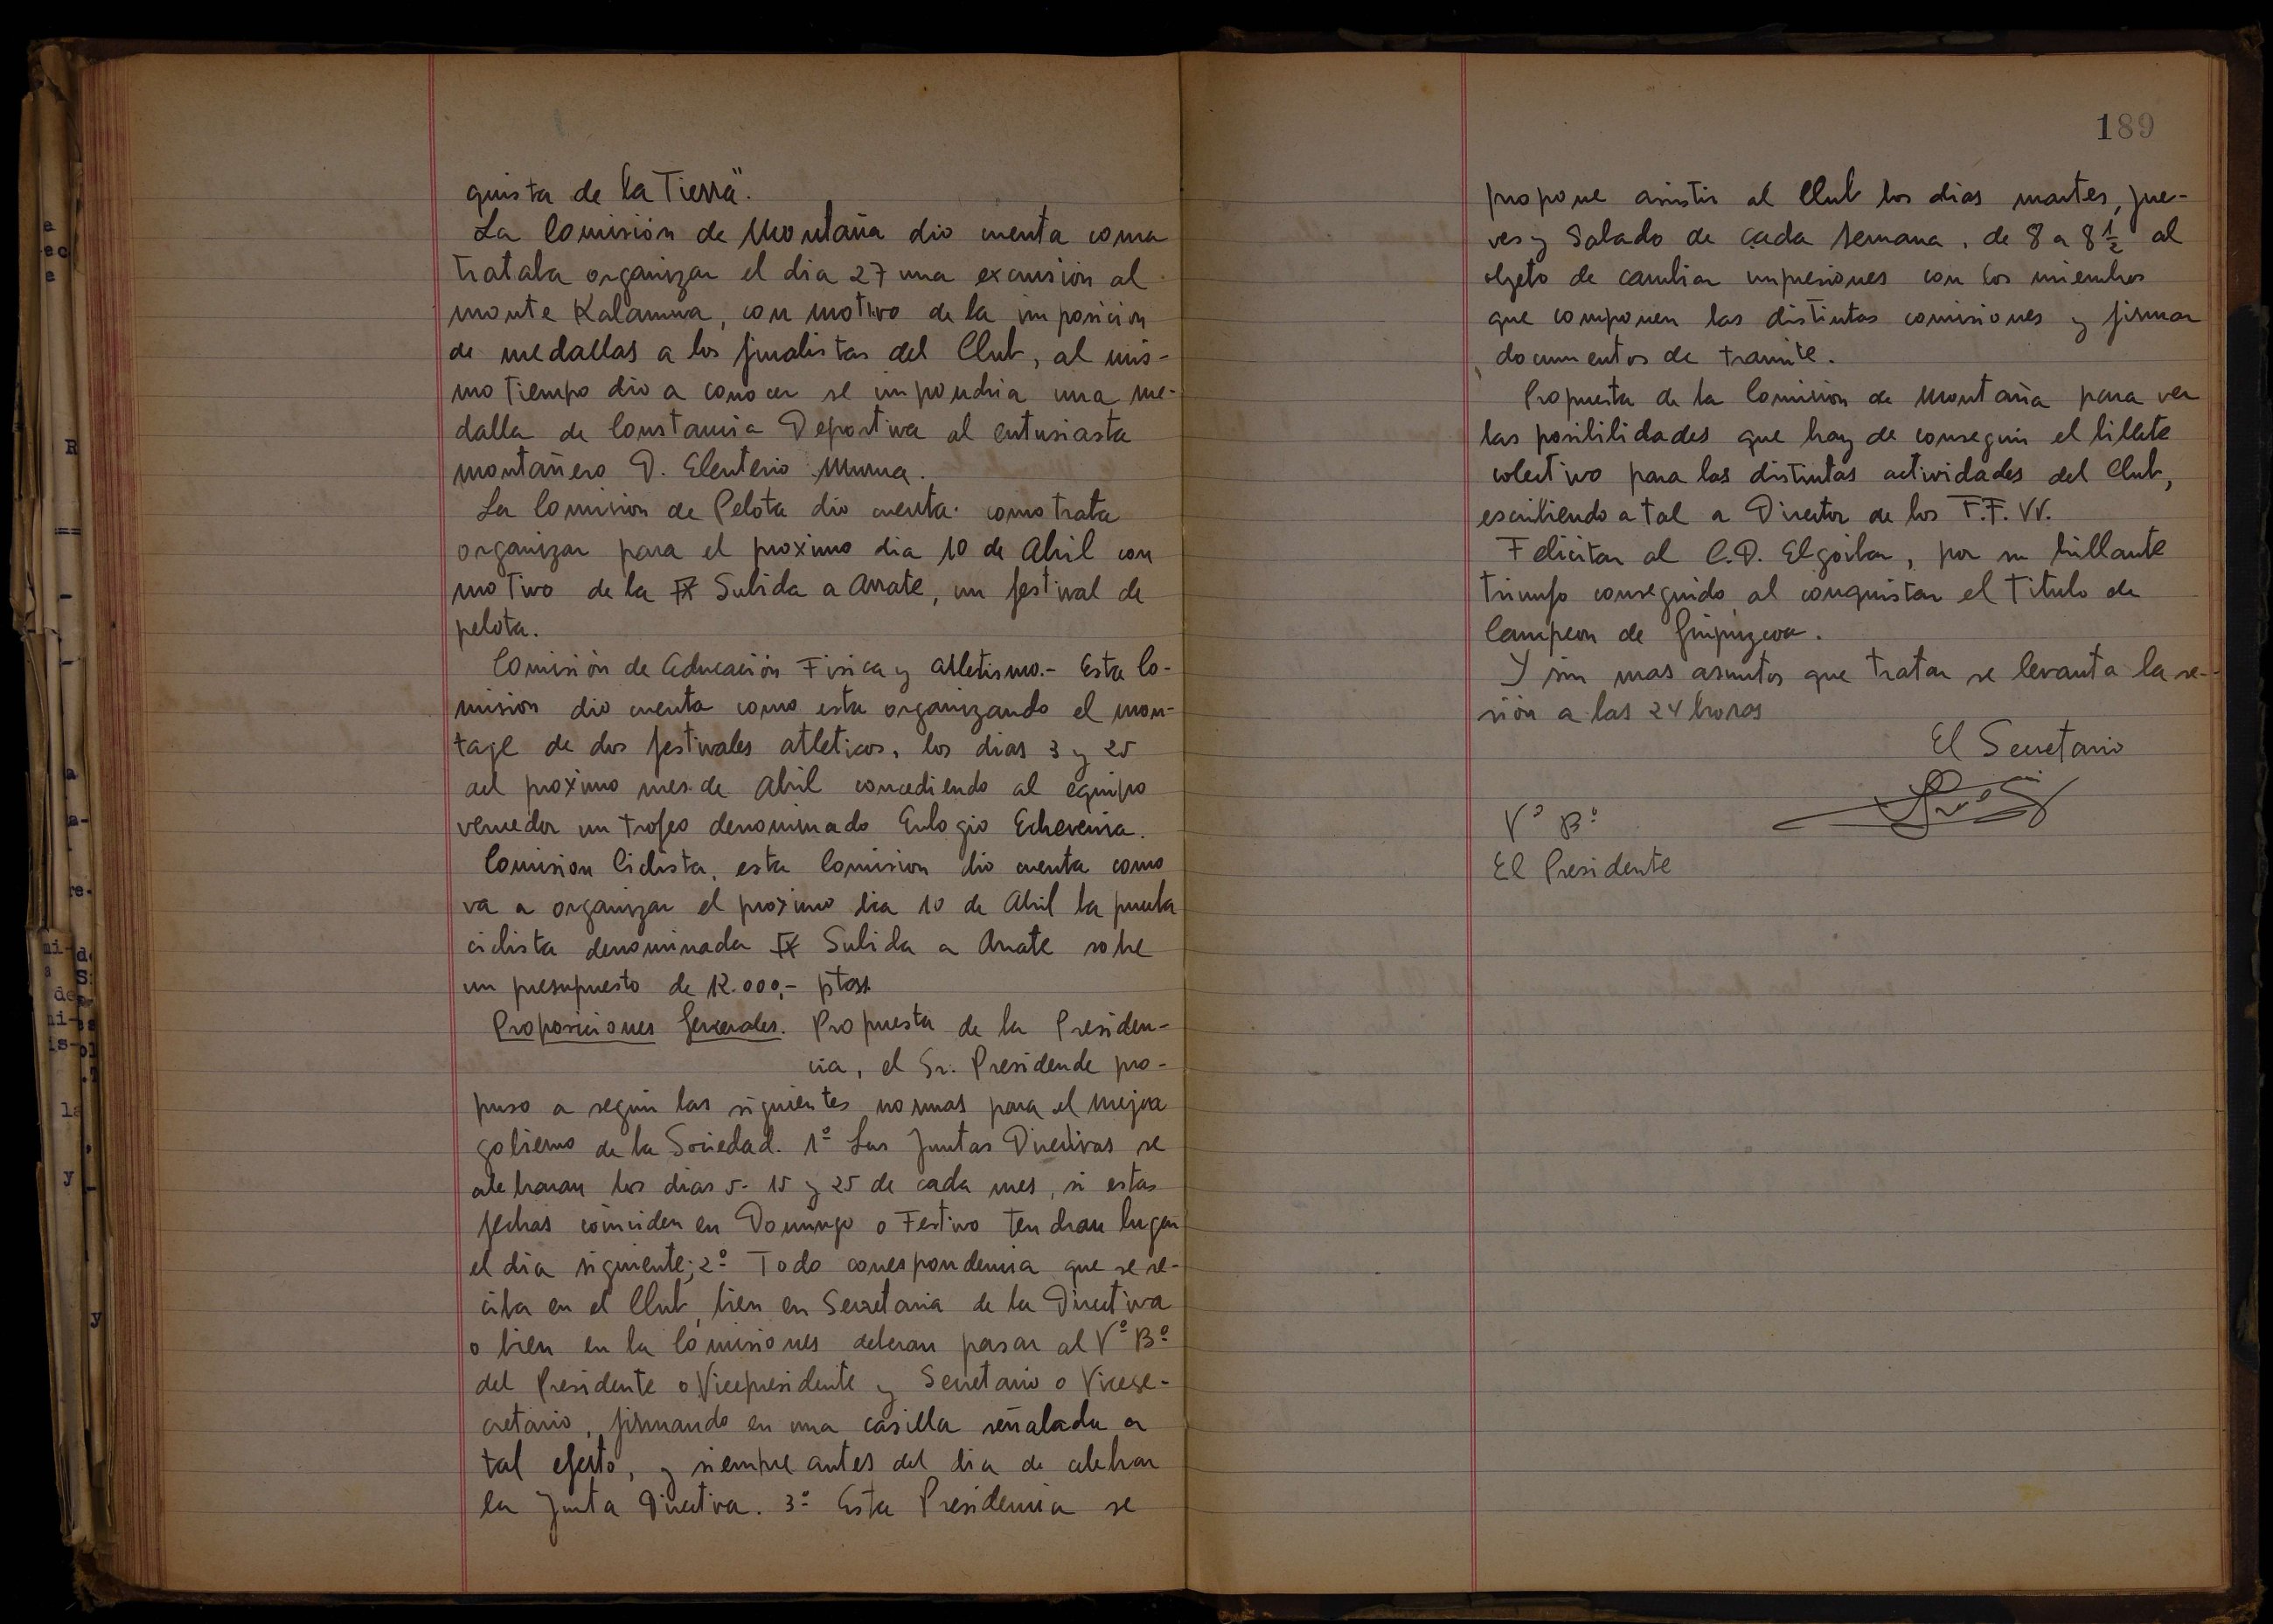 quista de la Tierra".
La Comisión de Montaña dio cuenta como
trataba organizar el dia 27 una excursión al
monte Kalamua, con motivo de la imposicion
de medallas a los finalistas del Club, al mis-
mo tiempo dio a conocer se impondria una me-
dalla de Constancia Deportiva al entusiasta
montañero D. Eleuterio
La Comision de Pelota dio cuenta como trata
organizar para el proximo dia 10 de Abril con
motivo de la IX Subida a Arrate, un festival de
pelota.
Comisión de Educación Fisica y Atletismo.- Esta Co-
mision dio cuenta como esta organizando el mon-
taje de dos festivales atleticos, los dias 3 y 25
del proximo mes de Abril concediendo al equipo
vencedor un trofeo denominado Eulogio Echeverria.
Comision Ciclista, esta Comision dio cuenta como
va a organizar el proximo dia 10 de Abril la prueba
ciclista denominada IX Subida a Arrate sobre
un presupuesto de 12.000,- ptas
Proposiciones Generales. Propuesta de la Presiden-
cia, el Sr. Presidende pro-
puso a seguir las siguientes normas para el mejor
gobierno de la Sociedad. 1º Las Juntas Directivas se
celebraran los dias 5- 15 y 25 de cada mes, si estas
fechas coinciden en Domingo o Festivo tendran lugar
el dia siguiente; 2º Todo correspondencia que se re-
ciba en el Club, bien en Secretaria de la Directiva
o bien en la Comisiones deberan pasar al Vº Bº
del Presidente o Vicepresidente y Secretario o Vicese-
cretario, firmando en una casilla señalada a
tal efecto, y siempre antes del dia de celebrar
la Junta Directiva. 3º Esta Presidencia se
189
propone asistir al Club los dias martes, jue-
ves y Sabado de cada semana, de 8 a 8 ½ al
objeto de cambiar impresiones con los miembros
que componen las distintas comisiones y firmar
documentos de tramite.
Propuesta de la Comision de Montaña para ver
las posibilidades que hay de conseguir el billete
colectivo para las distintas actividades del Club,
escribiendo a tal a Director de los F.F. VV.
Felicitar al C.D. Elgoibar, por su brillante
triunfo conseguido al conquistar el Titulo de
Campeon de Guipuzcoa.
Y sin mas asuntos que tratar se levanta la se-
sión a las 24 horas
El Secretario
Vº Bº
El Presidente